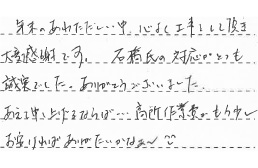 年末のあわただしい中、心よく工事をして頂き
大変感謝です。石橋氏の対応がとても
誠実でした。ありがとうございました。
あえて申し上げるならば… 高所作業費がもう少し
お安ければありがたいかなぁ〜